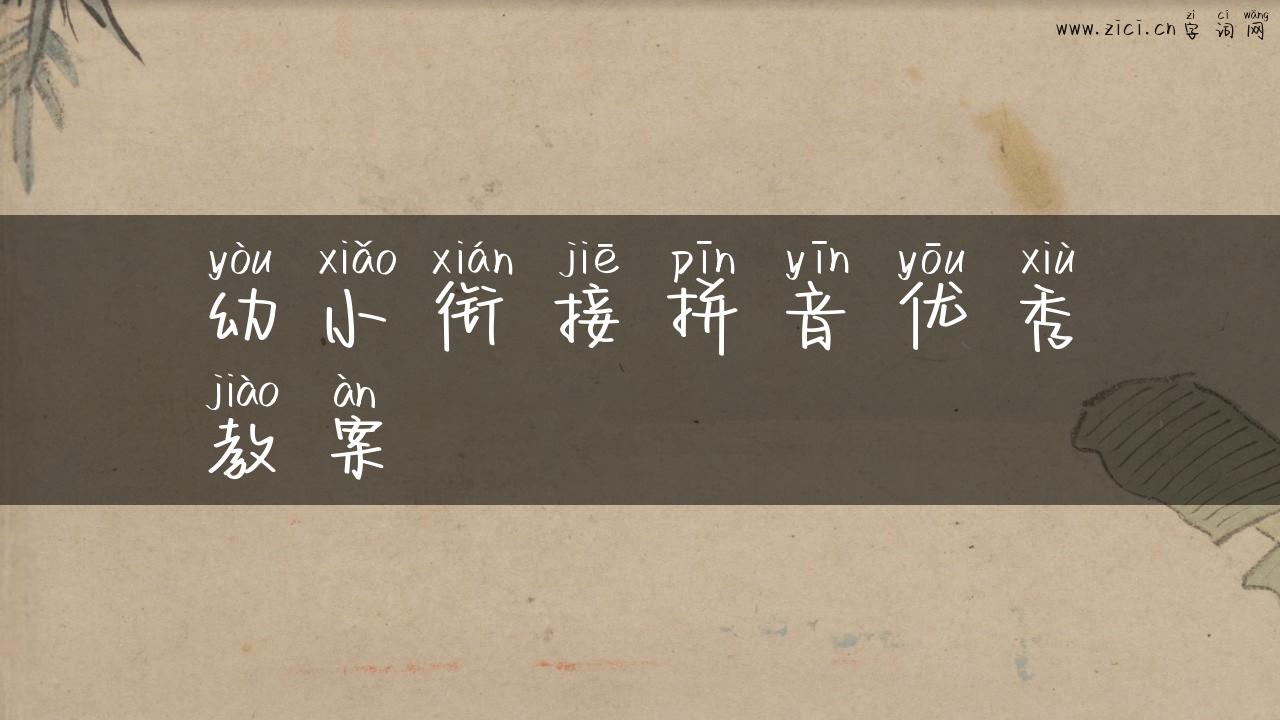 zì cí wǎng
www.zici.cn 字词网
yòu xiǎo xián jiē pīn yīn yōu xiù
幼小衔接拼音优秀
jiào àn
教案